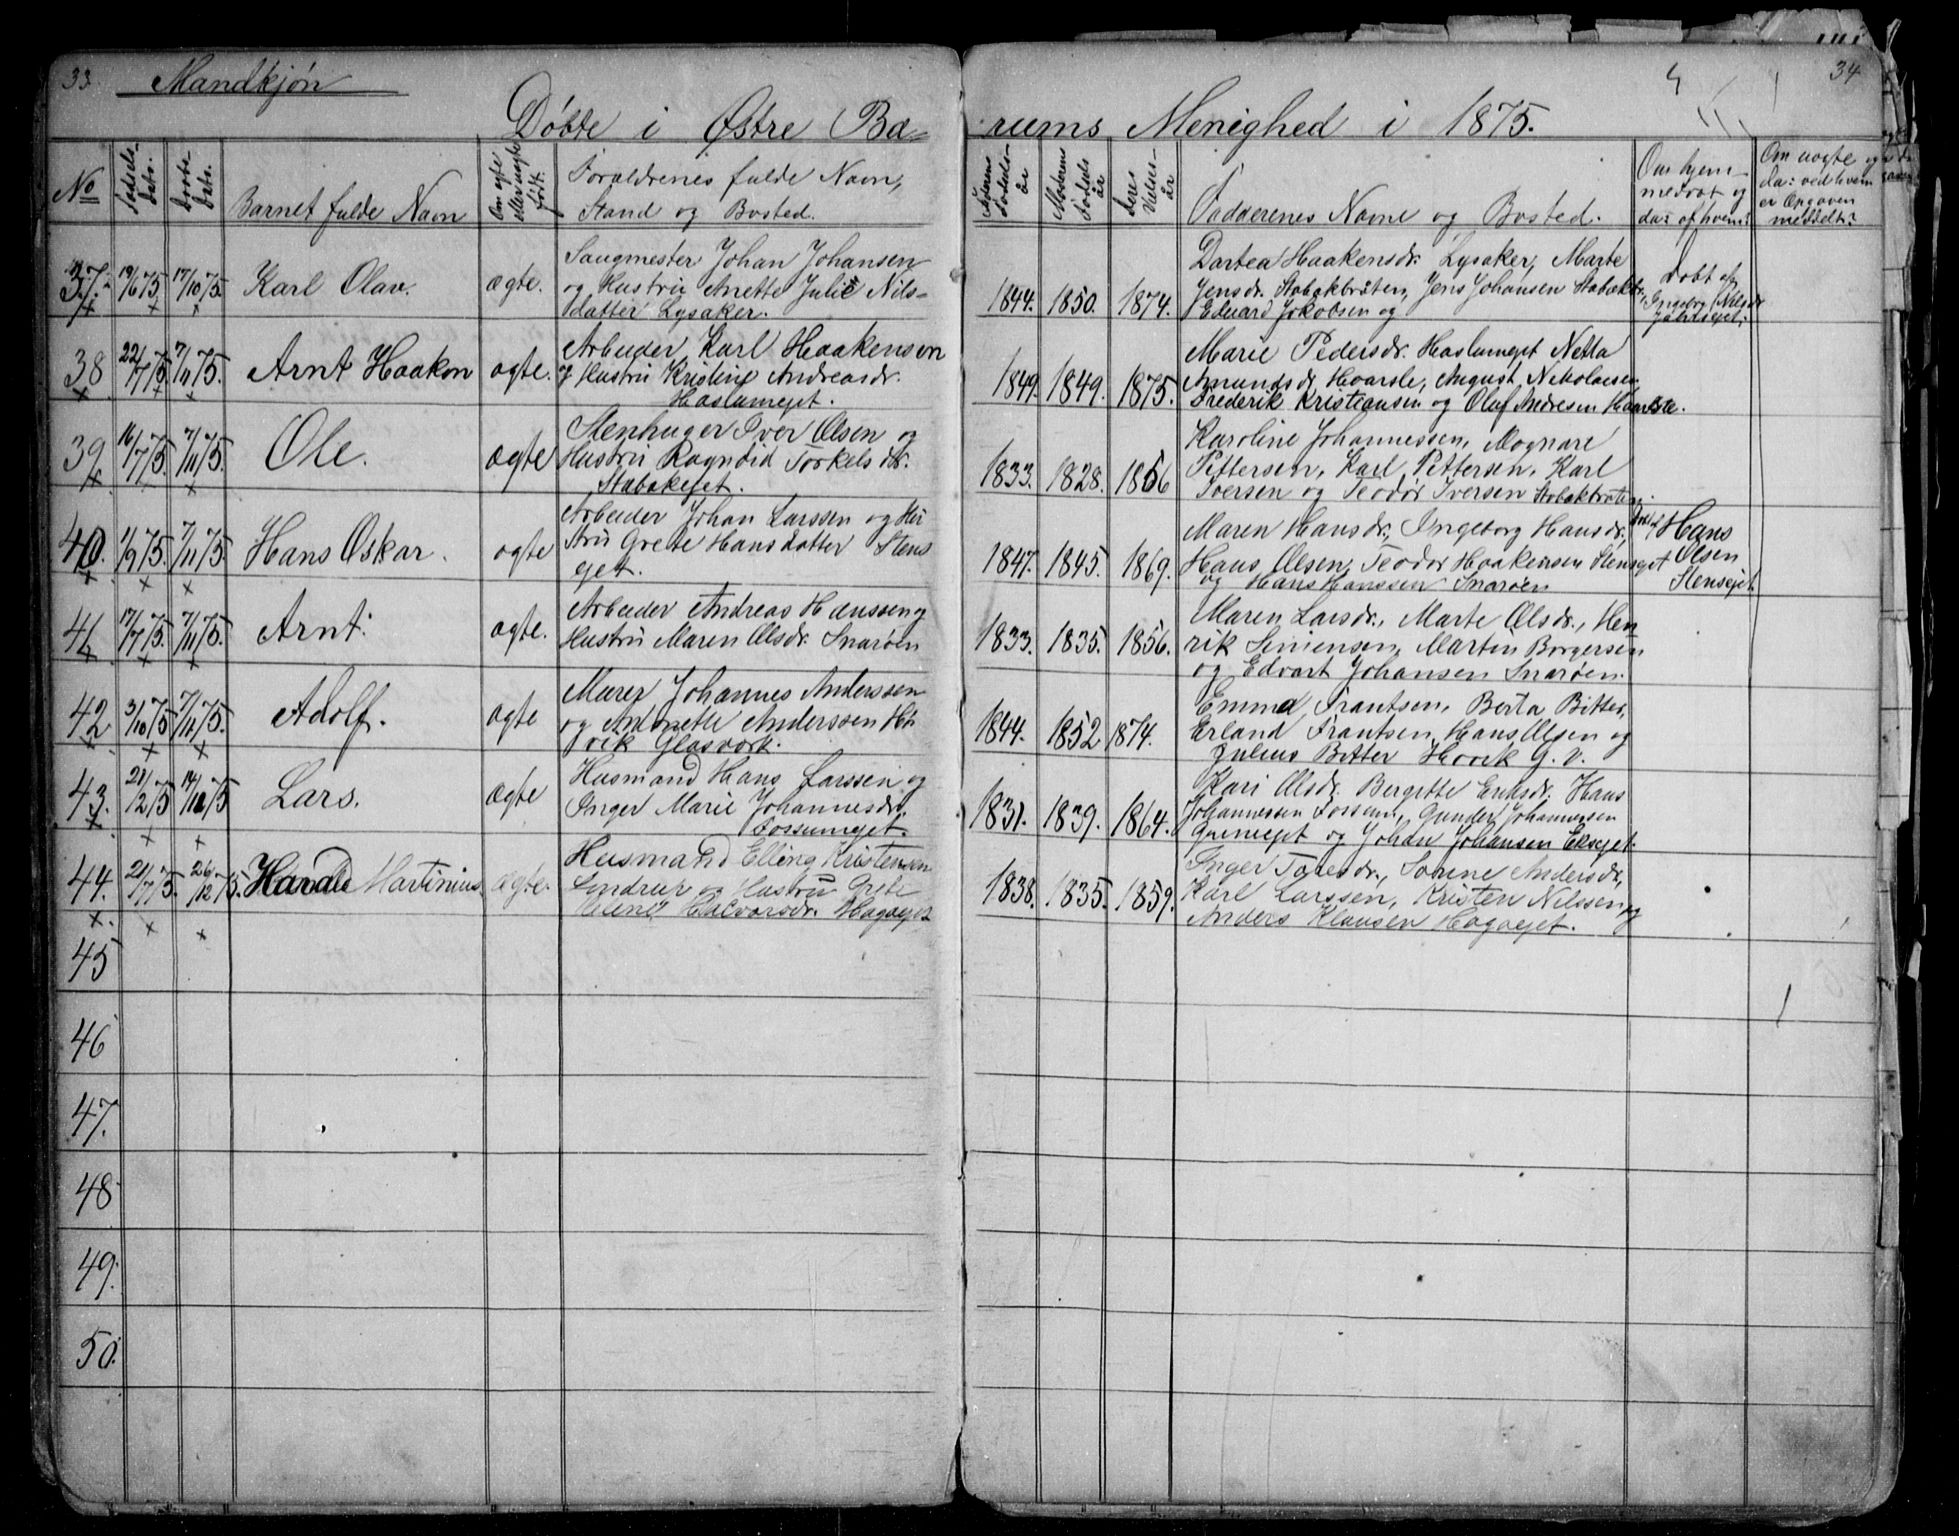 33. Mandkjøn
34
Døbte i Østre Bæ-
rums Menighed i 1875.
No
Fødsels-
Dato.
Døbte
Dato.
Barnets fulde Navn
Om ægte
eller uægte
født.
Forældrenes fulde Navn,
Stand og Bosted.
Faderens
Fødsels-
år
Moderens
Fødsels
år
Deres
Vielses-
år
Fadderenes Navne og Bosted.
Om hjem-
medøbt og
da: af hvem?
Om uægte og
da: ved hvem
er Opgaven
meddelt?
37. 19/6 75 17/10 75 Karl Olav. ægte.
Saugmester Johan Johansen
og Hustru Anette Julie Nils-
datter Lysaker.
1844. 1850. 1874.
Dortea Haakensdr. Lysaker, Marte
Jensdr. Stabækbråten, Jens Johansen Stabækbr.
Eduard Jokobsen og
Døbt af
Ingeborg Nilsdr
38 22/7 75 7/11 75. Arnt Haakon ægte.
Arbeider Karl Haakensen
og Hustru Kristine Andreasdr.
Haslumejet.
1849. 1849. 1875.
Marie Pedersdr. Haslumejet Netta
Amundsdr. Hoarsle, August Nikolaisen
Frederik Kristiansen og Olaf Andresen Haarsle.
39 16/7 75. 7/11 75. Ole. ægte
Stenhuger Iver Olsen og
Hustru Ragndid Torkelsdr.
Stabækejet.
1833. 1828. 1856
Karoline Johannessen, Mognare
Pettersen, Karl Pettersen, Karl
Iversen og Teodor Iversen Stabækbråten.
40. 1/9 75. 7/11 75 Hans Oskar. ægte
Arbeider Johan Larssen og Hu
stru Grete Hansdatter Stens
ejet.
1847. 1845. 1869.
Maren Hansdr., Ingeborg Hansdr.,
Hans Olsen, Teodor Haakensen Stensejet
og Hans Hanssen Snarøen
Hans
Olsen
Stensejet
41 17/7 75. 7/11 75. Arnt. ægte.
Arbeider Andreas Hanssen og
Hustru Maren Olsdr. Snarøen
1833. 1835. 1856.
Maren Larsdr., Marte Olsdr., Hen
rik Simensen, Martin Borgersen
og Edvart Johansen Snarøen.
42 3/10 75 7/11 75. Adolf. ægte
Murer Johannes Anderssen
og Antonette Anderssen Hø
vik Glasværk.
1844. 1852 1874.
Emma Frantsen, Berta Bitter,
Erland Frantsen, Hans Olsen og
Julius Bitter Høvik G. V.
43. 21/2 75 14/11 75 Lars. ægte
Husmand Hans Larssen og
Inger Marie Johannesdr.
Fossumejet.
1831. 1839. 1864.
Kari Olsdr. Bergitte Eriksdr. Hans
Johannessen Fossum, Gunder Johannessen
Griniejet og Johan Johansen Eksejet.
44. 21/7 75. 26/12 75. Martinius. ægte.
Husmand Elling Kristensen
og Hustru Grete
Helene Halvorsdr. Hagaejet
1838. 1835. 1859.
Inger Toresdr., Sorine Andersdr,
Karl Larssen, Kristen Nilssen og
Anders Klausen Hagaejet.
45
46
47.
48
49.
50.